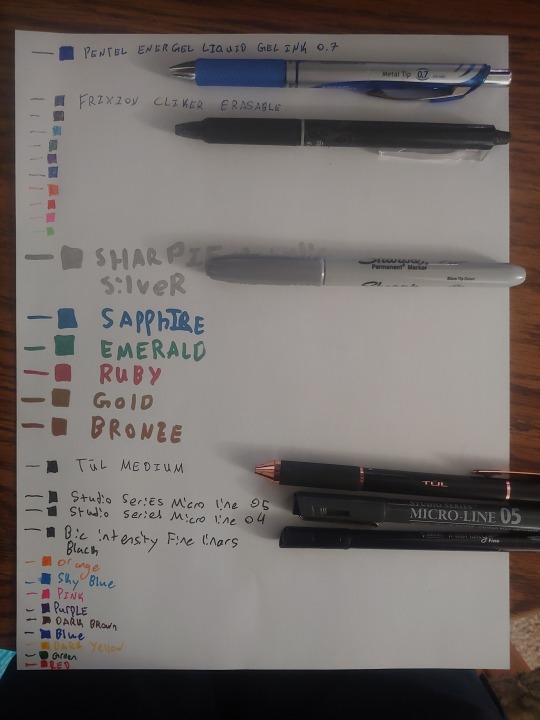 PENTEL ENERGEL LIQUID GEL INK 0.7
Metal Tip 0.7
FRIXION CLIKER ERASABLE
SHARPIE
SilveR
Sharpie
Permanent Marker
SAPPHIRE
EMERALD
RUBY
GOLD
BRONZE
TÜL MEDIUM
TÜL
Studio Series Micro line 05
Studio Series Micro line 04
STUDIO SERIES
MICRO-LINE 05
Bic intensity Fine linars
Black
Fine
Orange
Sky Blue
PINK
PURPLE
DARK BROWN
Blue
Dark Yellow
Green
RED